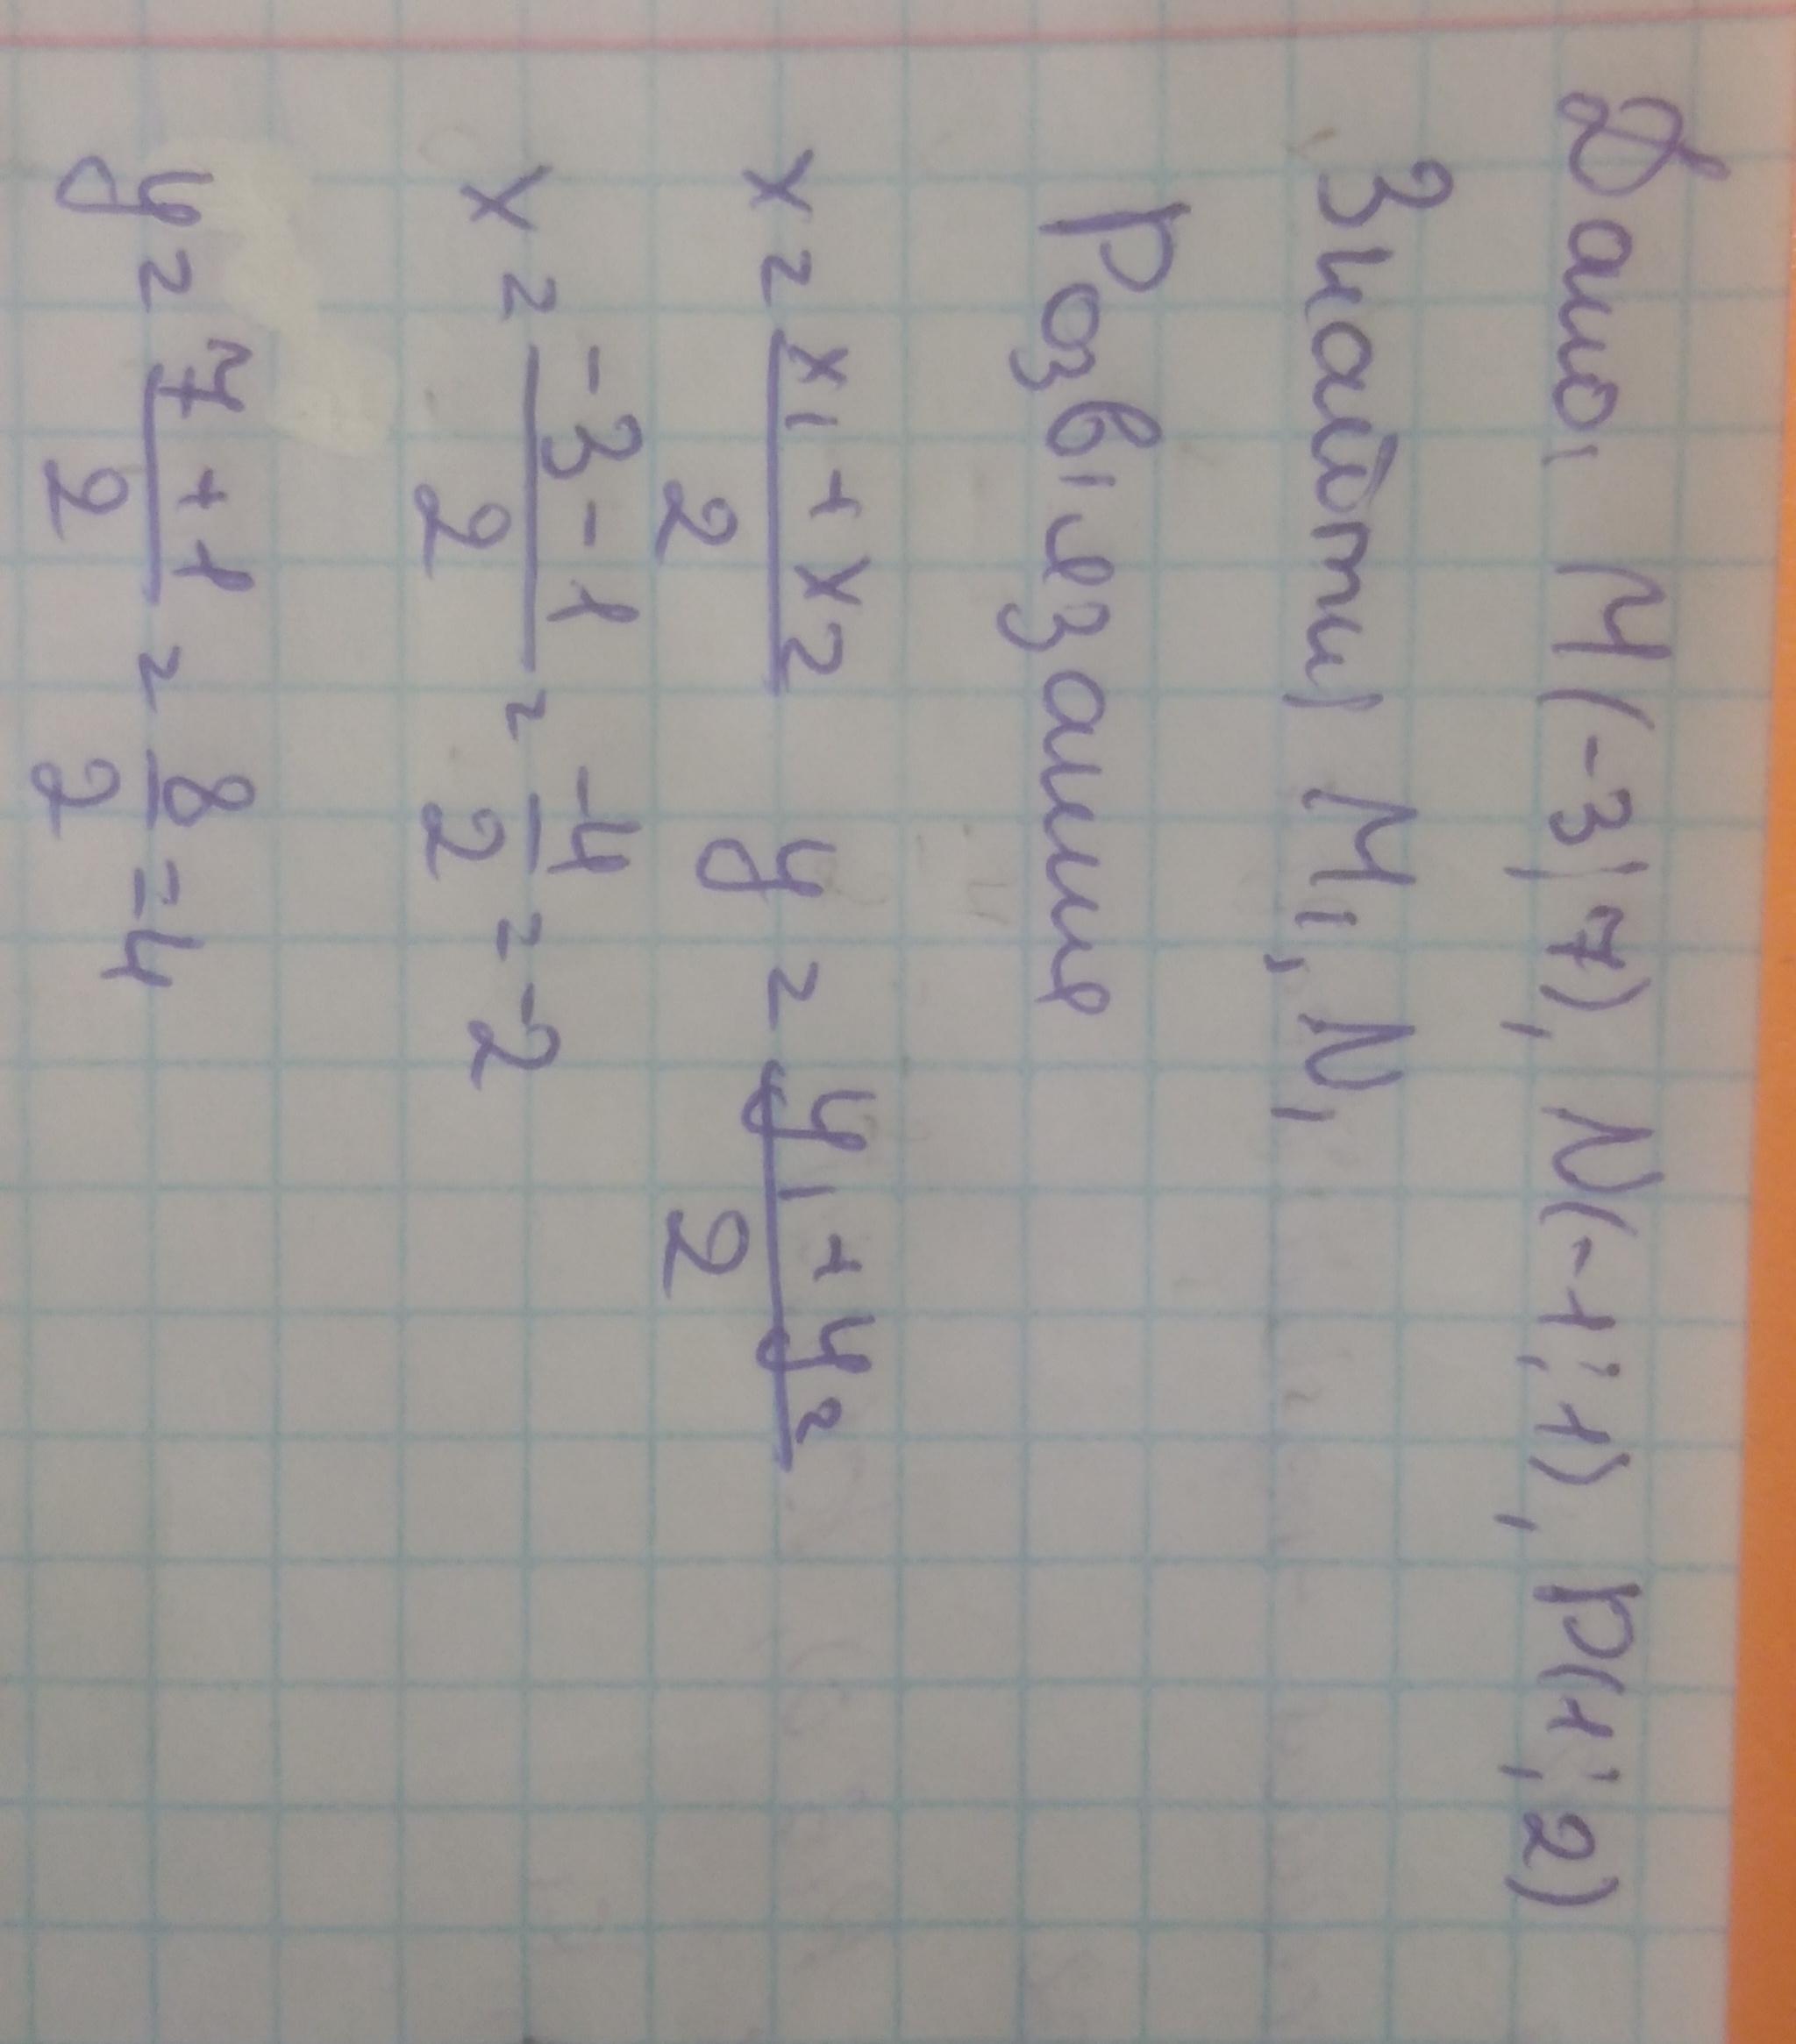 Дано, M(-3;7), N(-1;1), P(1;2)
Знайти M₁, N₁
Розвʼязання
x = (x₁ + x₂)/2 y = (y₁ + y₂)/2
x = (-3-1)/2 = -4/2 = -2
y = (7+1)/2 = 8/2 = 4